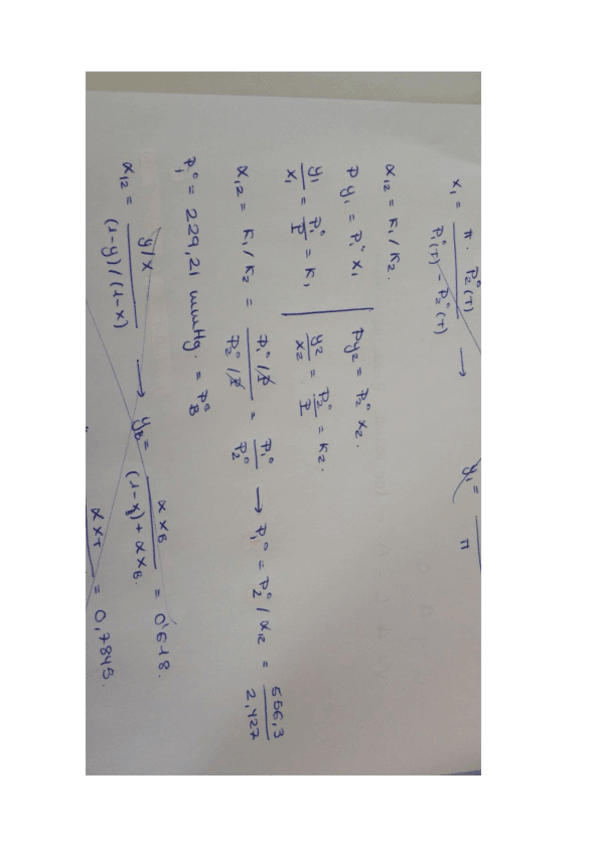 x₁ = π · P₂°(T) / P₁°(T) − P₂°(T) → y₁ = / π
α₁₂ = K₁ / K₂.
P y₁ = P₁° x₁ | P y₂ = P₂° x₂.
y₁ / x₁ = P₁° / P = K₁ | y₂ / x₂ = P₂° / P = K₂.
α₁₂ = K₁ / K₂ = P₁° / P / P₂° / P = P₁° / P₂° → P₁° = P₂° / α₁₂ = 556,3 / 2,427
P₁° = 229,21 mmHg. = P°B
α₁₂ = y/x / (1−y)/(1−x) → yB = α xB / (1−x) + α xB. = 0'618.
α xT = 0,7845.